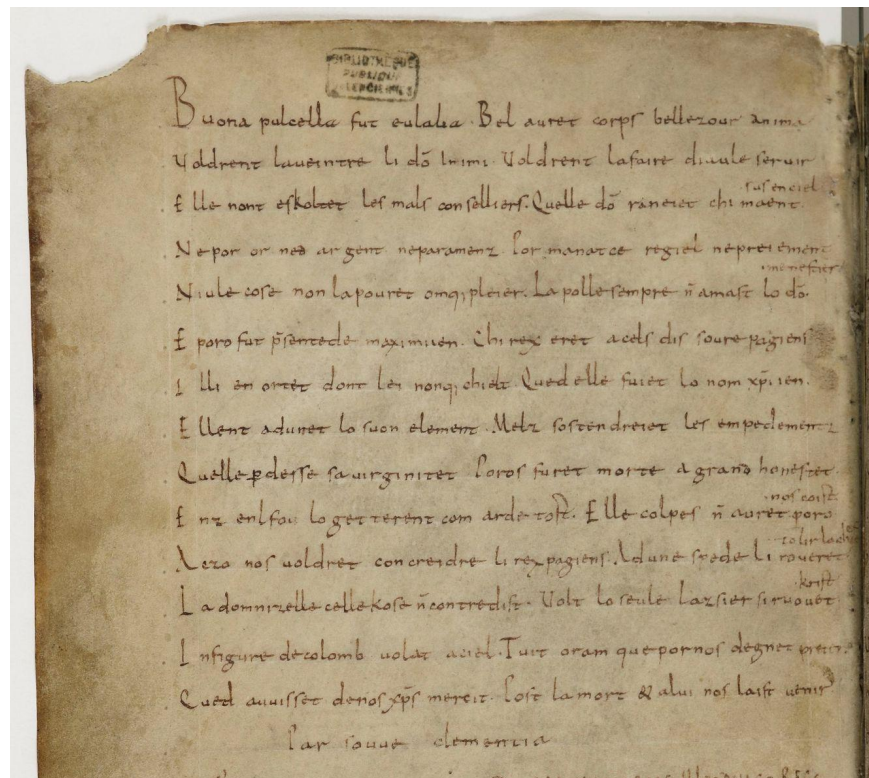 BIBLIOTHEQUE
PUBLIQUE
VALENCIENNES
Buona pulcella fut eulalia. Bel auret corps bellezour anima
Voldrent laueintre li dō Inimi. Voldrent lafaire diaule seruir
sus en ciel
Elle nont eskoltet les mals conselliers. Quelle dō raneiet chi maent
Ne por or ned argent neparamenz. Por manatce regiel nepreiement
menestier
Niule cose non lapouret omqi pleier. La polle sempre n̄ amast lo dō
E poro fut p̄sentede maximiien. Chi rex eret acels dis soure pagiens
I lli en ortet dont lei nonqi chielt. Qued elle fuiet lo nom xp̄iien.
Ellent adunet lo suon element. Melz sostendreiet les empedementz
Quelle ꝑdesse sa uirginitet. Poros furet morte a grand honestet.
nos coist
Enz enlfou lo getterent com arde tost. Elle colpes n̄ auret poro
tolir lo chef
Aezo nos uoldret concreidre li rex pagiens. Ad une spede li roueret
krist
La domnizelle celle kose n̄ contredist. Volt lo seule lazsier si ruouet
In figure de colomb uolat aciel. Tuit oram que por nos degnet preier.
Qued auuisset de nos xp̄s mercit. Post la mort & a lui nos laist uenir
Par souue clementia